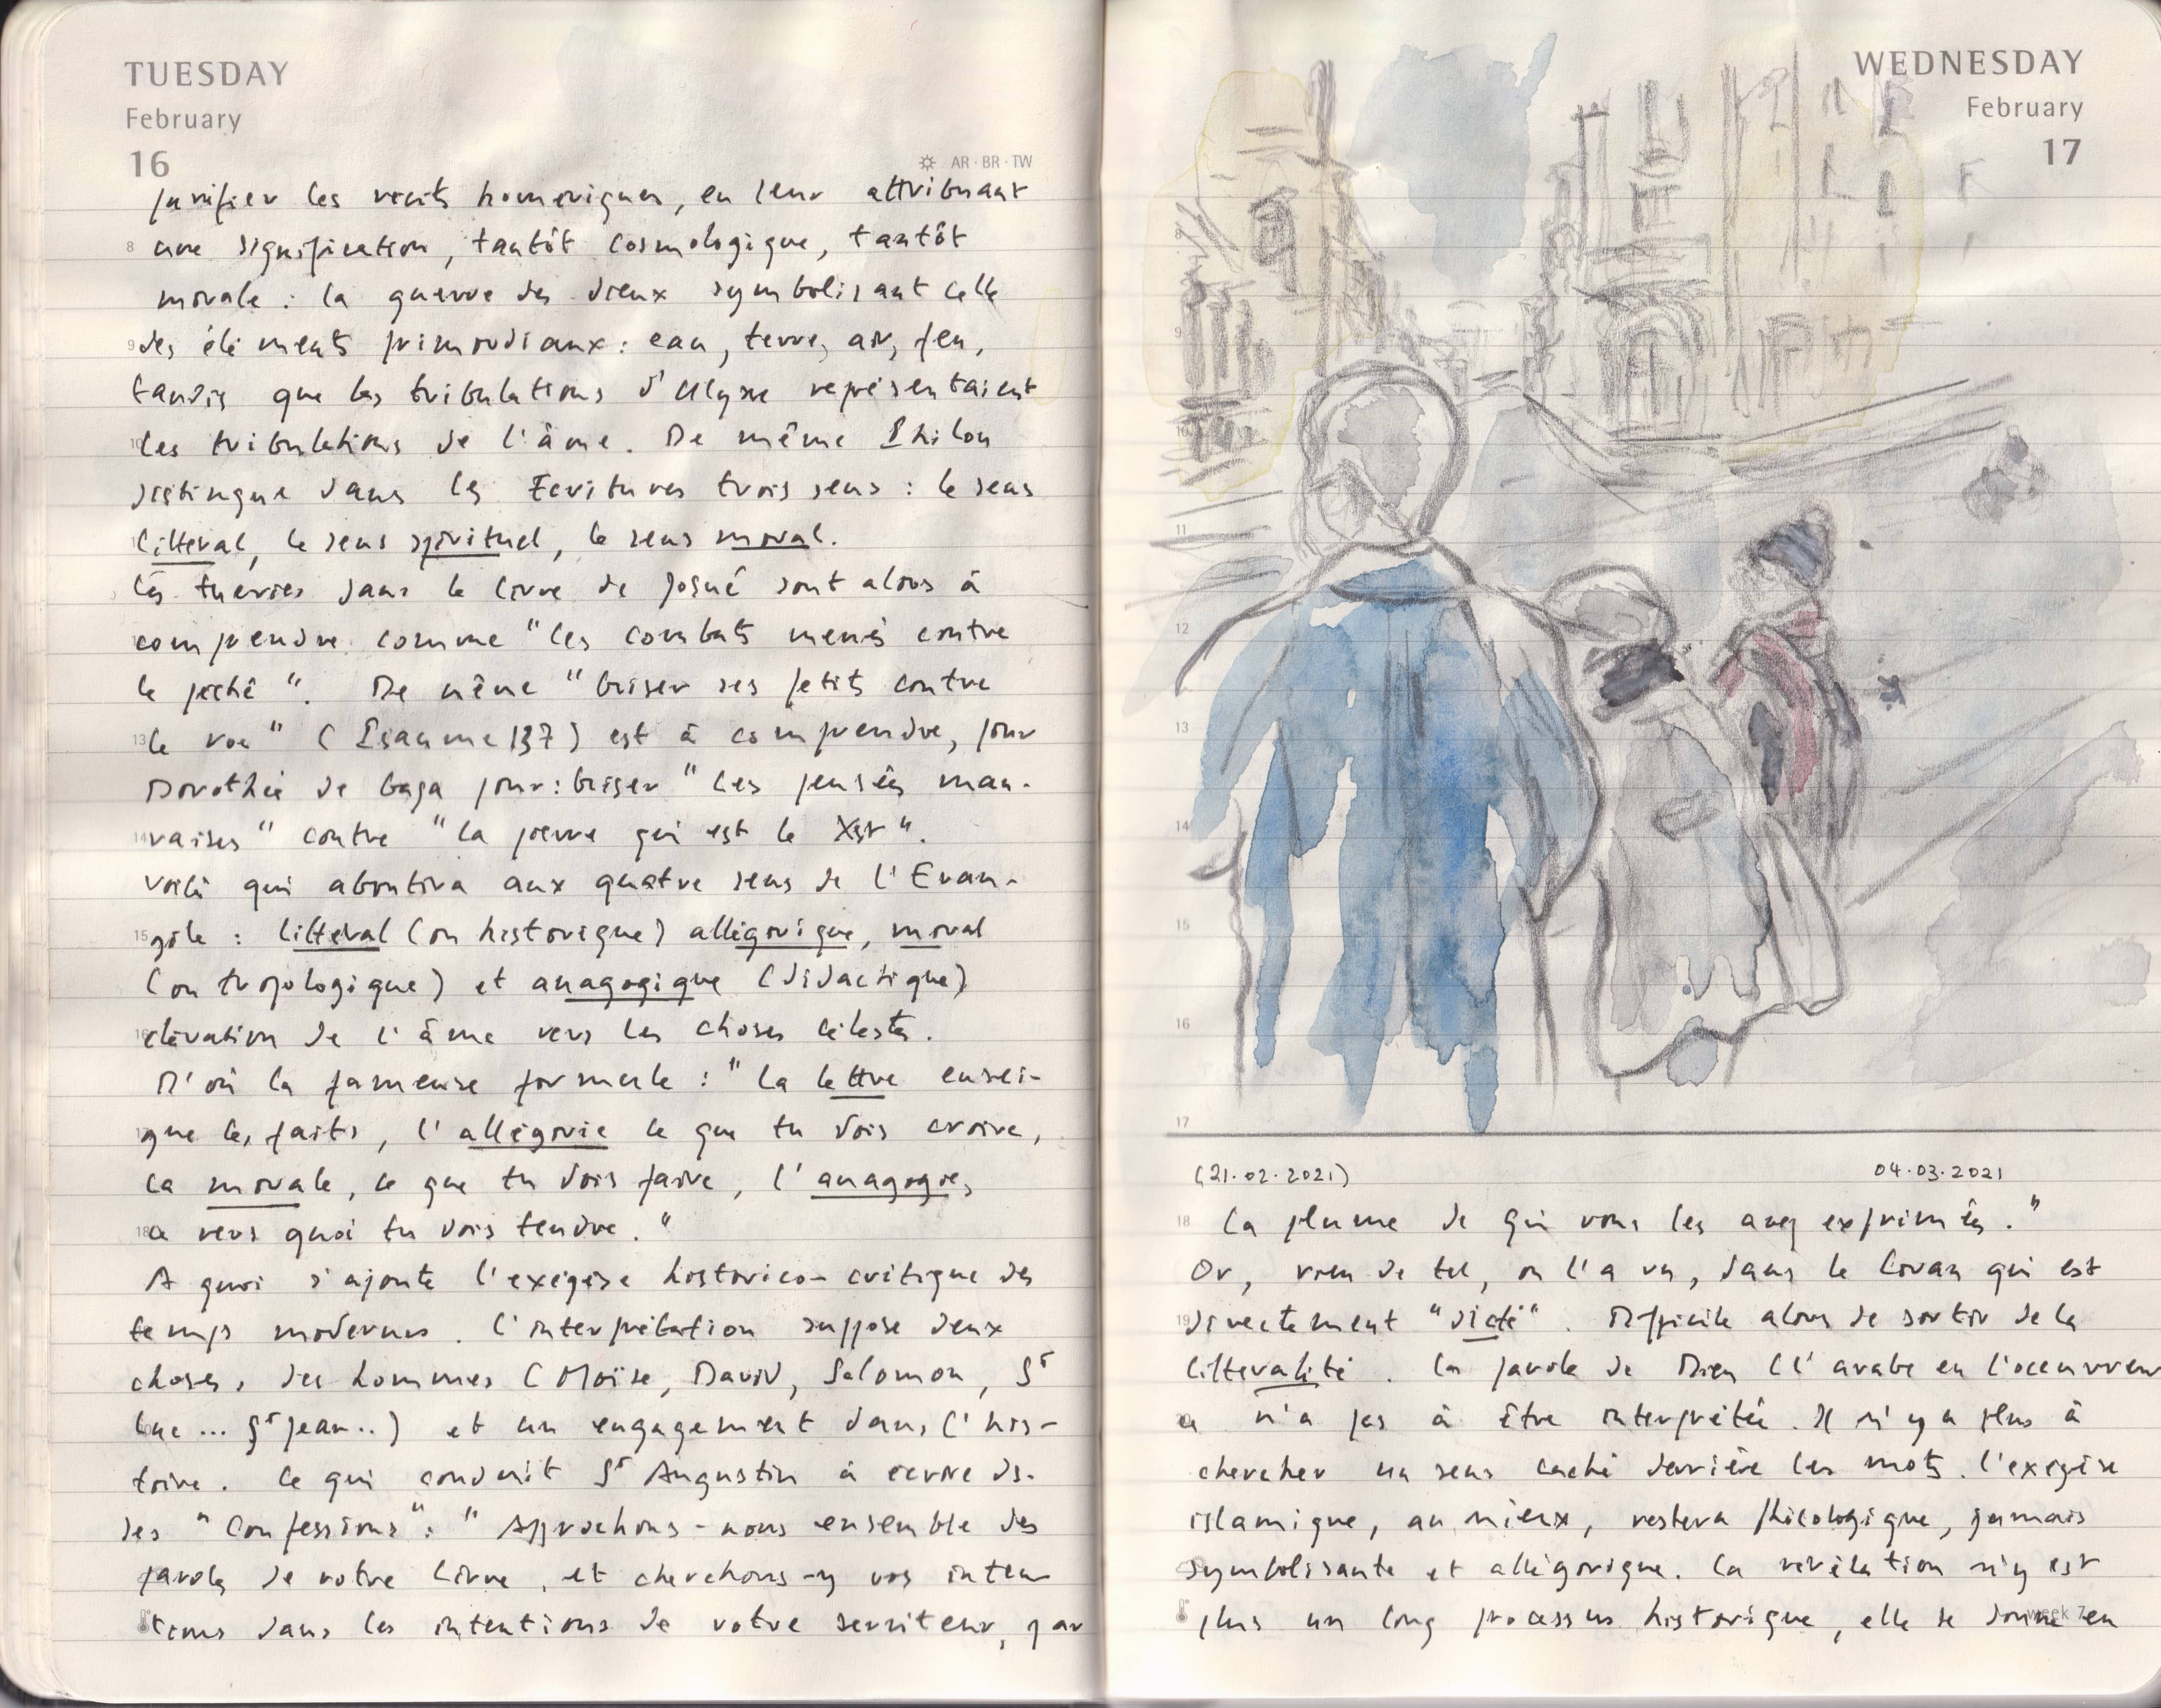 TUESDAY
February
16
AR · BR · TW
purifier les récits homériques, en leur attribuant
8 une signification, tantôt cosmologique, tantôt
morale : la guerre des dieux symbolisant celle
9 des éléments primordiaux : eau, terre, air, feu,
tandis que les tribulations d'Ulysse représentaient
10 les tribulations de l'âme. De même Philon
distingue dans les Ecritures trois sens : le sens
littéral, le sens spirituel, le sens moral.
Les tueries dans le livre de Josué sont alors à
comprendre comme "les combats menés contre
le péché". De même "briser ses petits contre
13 le roc" (Psaume 137) est à comprendre, pour
Dorothée de Gaza pour : briser "les pensées mau-
14 vaises" contre "la pierre qui est le Xst".
Voilà qui aboutira aux quatre sens de l'Evan-
15 gile : littéral (ou historique) allégorique, moral
(ou tropologique) et anagogique (didactique)
16 élévation de l'âme vers les choses célestes.
D'où la fameuse formule : "la lettre ensei-
gne les faits, l'allégorie ce que tu dois croire,
la morale, ce que tu dois faire, l'anagogie,
18 a vers quoi tu dois tendre."
A quoi s'ajoute l'exégèse historico-critique des
temps modernes. L'interprétation suppose deux
choses, des hommes (Moïse, David, Salomon, St
Luc ... St Jean ..) et un engagement dans l'his-
toire. Ce qui conduit St Augustin à écrire ds.
ses "Confessions" : "Approchons-nous ensemble des
paroles de votre Livre, et cherchons-y vos inten
tions dans les intentions de votre serviteur, par
WEDNESDAY
February
17
8
9
10
11
12
13
14
15
16
17
(21.02.2021) 04.03.2021
18 la plume de qui vous les avez exprimées."
Or, rien de tel, on l'a vu, dans le Coran qui est
19 directement "dicté". Difficile alors de sortir de la
littéralité. La parole de Dieu (l'arabe en l'occurren
a n'a pas à être interprétée. Il n'y a plus à
chercher un sens caché derrière les mots. L'exégèse
islamique, au mieux, restera philologique, jamais
symbolisante et allégorique. La révélation n'y est
plus un long processus historique, elle se donne en
week 7